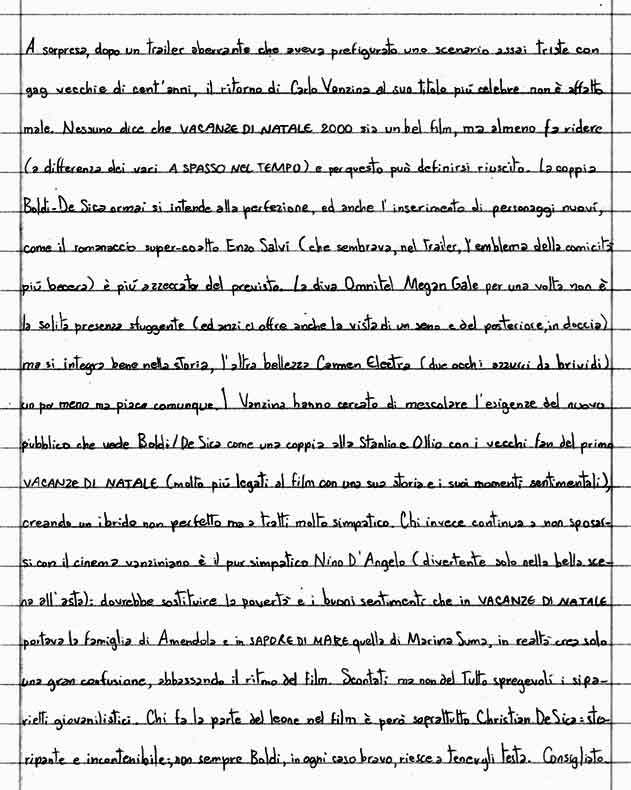 A sorpresa, dopo un trailer aberrante che aveva prefigurato uno scenario assai triste con
gag vecchie di cent'anni, il ritorno di Carlo Vanzina al suo titolo più celebre non è affatto
male. Nessuno dice che VACANZE DI NATALE 2000 sia un bel film, ma almeno fa ridere
(a differenza dei vari A SPASSO NEL TEMPO) e per questo può definirsi riuscito. La coppia
Boldi-De Sica ormai si intende alla perfezione, ed anche l'inserimento di personaggi nuovi,
come il romanaccio super-coatto Enzo Salvi (che sembrava, nel trailer, l'emblema della comicità
più becera) è più azzeccato del previsto. La diva Omnitel Megan Gale per una volta non è
la solita presenza sfuggente (ed anzi ci offre anche la vista di un seno e del posteriore, in doccia)
ma si integra bene nella storia, l'altra bellezza Carmen Electra (due occhi azzurri da brividi)
un po' meno ma piace comunque. I Vanzina hanno cercato di mescolare l'esigenze del nuovo
pubblico che vede Boldi/De Sica come una coppia alla Stanlio e Ollio con i vecchi fan del primo
VACANZE DI NATALE (molto più legati al film con una sua storia e i suoi momenti sentimentali),
creando un ibrido non perfetto ma a tratti molto simpatico. Chi invece continua a non sposar-
si con il cinema vanziniano è il pur simpatico Nino D'Angelo (divertente solo nella bella sce-
na all'asta): dovrebbe sostituire la povertà e i buoni sentimenti che in VACANZE DI NATALE
portava la famiglia di Amendola e in SAPORE DI MARE quella di Marina Suma, in realtà crea solo
una gran confusione, abbassando il ritmo del film. Scontati ma non del tutto spregevoli i sipa-
rietti giovanilistici. Chi fa la parte del leone nel film è però soprattutto Christian De Sica: sto-
ripante e incontenibile; non sempre Boldi, in ogni caso bravo, riesce a tenergli testa. Consigliato.